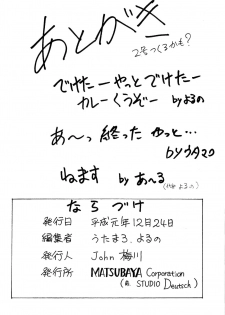 あとがき
2号つくるかも?
でけたーやっとでけたー
カレーくうぞー byよるの
あ〜っ終った やっと…
byウタマロ
ねます by あ〜る
ならづけ
発行日 平成元年12月24日
編集者 うたまろ、よるの
発行人 John 梅川
発行所 MATSUBAYA Corporation
STUDIO Deutsch)